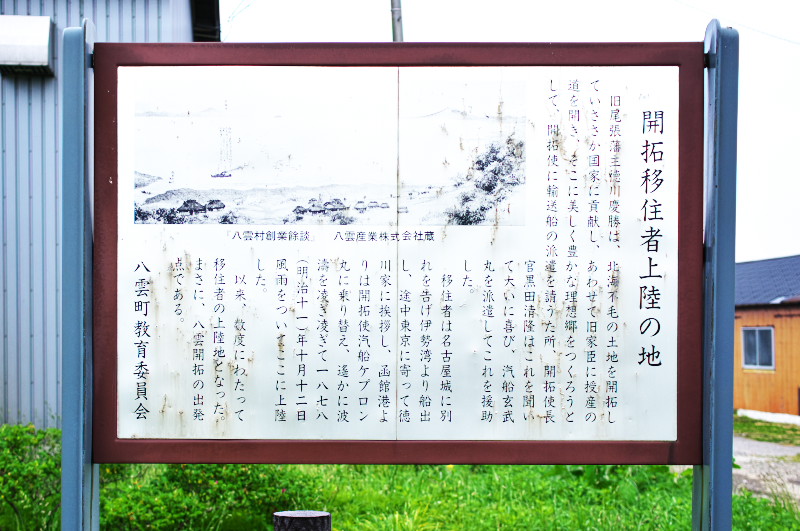 開拓移住者上陸の地
旧尾張藩主徳川慶勝は、北海不毛の土地を開拓し
ていささか国家に貢献し、あわせて旧家臣に授産の
道を開き、そこに美しく豊かな理想郷をつくろうと
して、開拓使に輸送船の派遣を請うた所、開拓使長
官黒田清隆はこれを聞い
て大いに喜び、汽船玄武
丸を派遣してこれを援助
した。
移住者は名古屋城に別
れを告げ伊勢湾より船出
し、途中東京に寄って徳
川家に挨拶し、函館港よ
りは開拓使汽船ケプロン
丸に乗り替え、遥かに波
濤を凌ぎ凌ぎて一八七八
(明治十一)年十月十二日
風雨をついてここに上陸
した。
以来、数度にわたって
移住者の上陸地となった。
まさに、八雲開拓の出発
点である。
八雲町教育委員会
「八雲村創業餘談」 八雲産業株式会社蔵